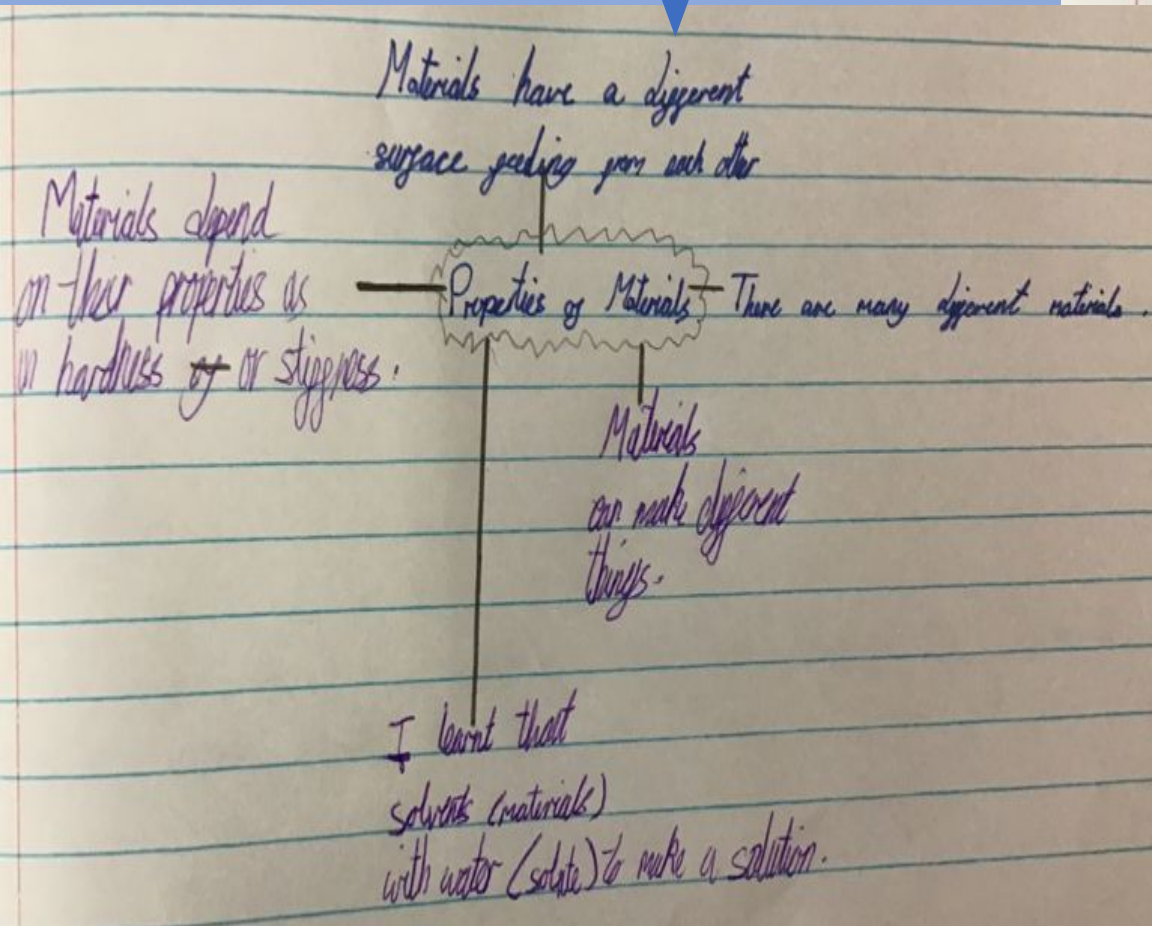 Materials have a different
surface feeling from each other
Materials depend
on their properties as
in hardness of or stiffness.
Properties of Materials
There are many different materials.
Materials
can make different
things.
I learnt that
solvents (materials)
with water (solute) to make a solution.